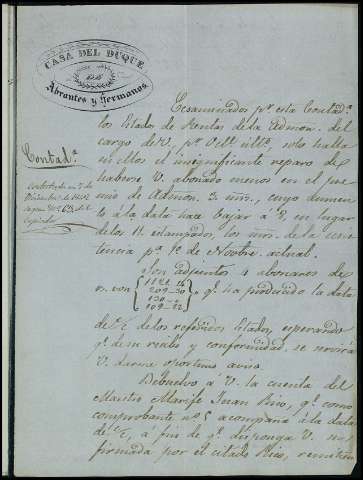 CASA DEL DUQUE
DE
Abrantes y hermanos
Contad.ª
Ecsaminados p.r esta Contad.ª
los Estados de Rentas de la Admon. del
cargo de V, p.r últ.º, solo halla
en ellos el insignificante reparo de
haberse V. abonado menos en el pre
mio de Admon. 3 mrs., cuyo aumen
to á la data hace bajar á 8 en lugar
de los 11 estampados, los mrs. de la ecsis
tencia p.ª 1.º de Novbre. actual.
Son adjuntos 4 abonares de
r.s von 1121-16
209-30
130-
109-22
q.e ha producido la data
de los referidos Estados, esperando
q.e de su recibo y conformidad, se servirá
V. darme oportuno aviso.
Debuelvo á V. la cuenta del
Maestro Alarife Juan Rico, q.e como
comprobante nº 5 acompaña á la data
á fin de q.e disponga V. sea
firmada por el citado Rico, remitien